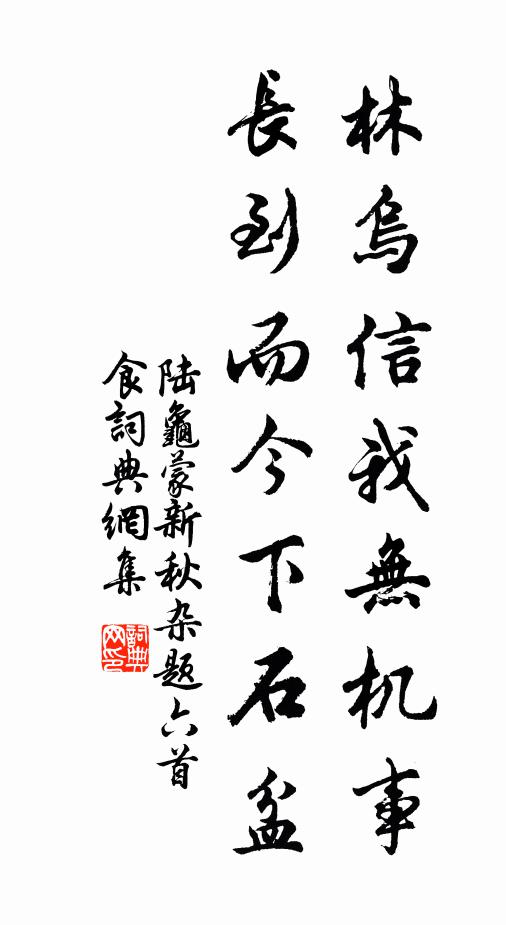 林烏信我無机事
長到而今下石盆
陆龜蒙新秋杂题六首
食詞典網集
詞典网印